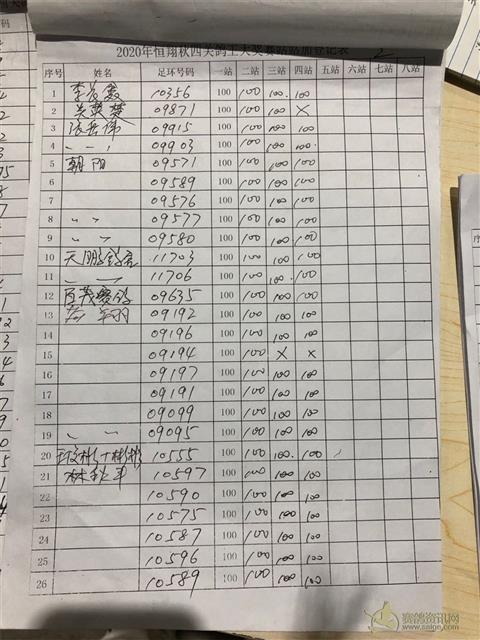 2020年恒翔秋四关鸽王大奖赛站站加登记表 2
序号 姓名 足环号码 一站 二站 三站 四站 五站 六站 七站 八站
1 10356 100 100 100 100
2 09871 100 100 100 X
3 09915 100 100 100 100
4 〃 〃 09903 100 100 100 100
5 朝阳 09571 100 100 100 100
6 09589 100 100 100 100
7 09576 100 100 100 100
8 〃 〃 09577 100 100 100 100
9 〃 〃 09580 100 100 100 100
10 天鹏鸽舍 11703 100 100 100 100
11 〃 〃 11706 100 100 100 100
12 百茂赛鸽 09635 100 100 100 100
13 09192 100 100 100 100
14 09196 100 100 100 100
15 09194 100 100 X X
16 09197 100 100 100 100
17 09191 100 100 100 100
18 09099 100 100 100 100
19 〃 〃 09095 100 100 100 100
20 10555 100 100 100 100
21 10597 100 100 100 100
22 10590 100 100 100 100
23 10575 100 100 100 100
24 10587 100 100 100 100
25 10596 100 100 100 100
26 10589 100 100 100 100
赛鸽资讯网
www.saige.com